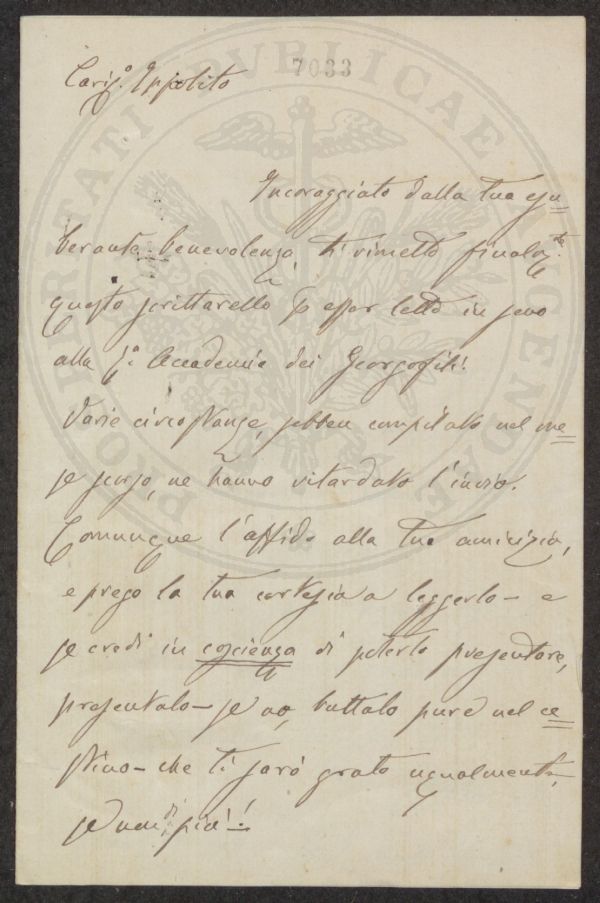 7033
PROSPERITATI PUBLICAE AUGENDAE
Cariss.º Ippolito
Incoraggiato dalla tua esu=
berante benevolenza, ti rimetto finalm.te
questo scrittarello p esser letto in seno
alla R.ª Accademia dei Georgofili.
Varie circostanze, sebben compilato nel me=
se scorso, ne hanno ritardato l'invio.
Comunque l'affido alla tua amicizia,
e prego la tua cortesia a leggerlo – e
se credi in coscienza di poterlo presentare,
presentalo – se no, buttalo pure nel ce=
stino – che ti sarò grato ugualmente,
se non di più – !